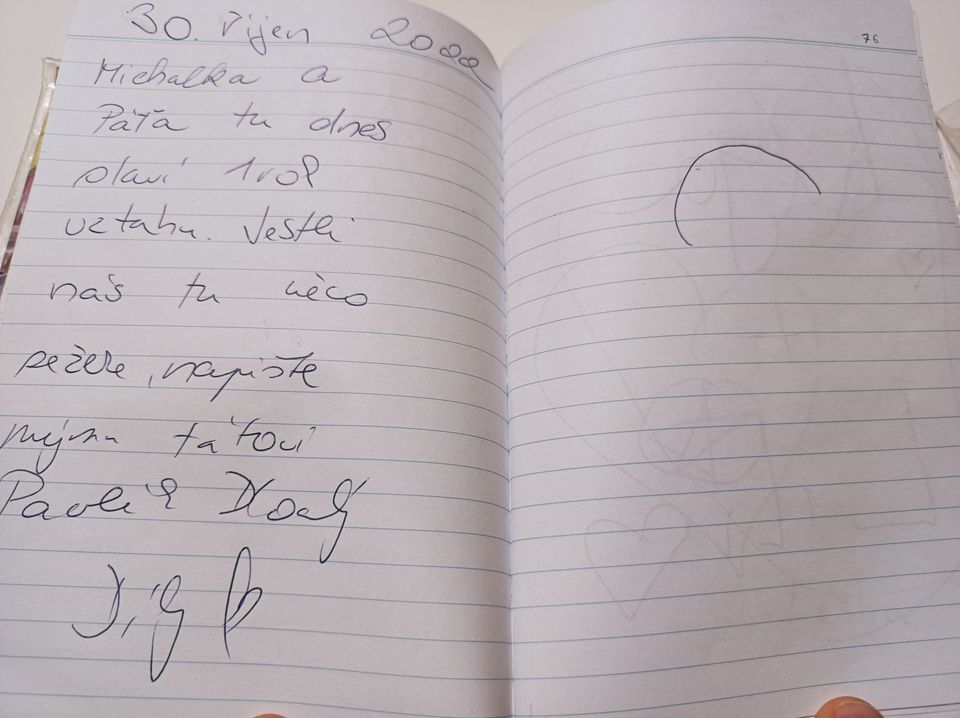 30. říjen 2022
Michalka a
Páťa tu dnes
slaví 1 rok
vztahu. Jestli
nás tu něco
sežere, napište
mýmu tátovi
Pavlík
76